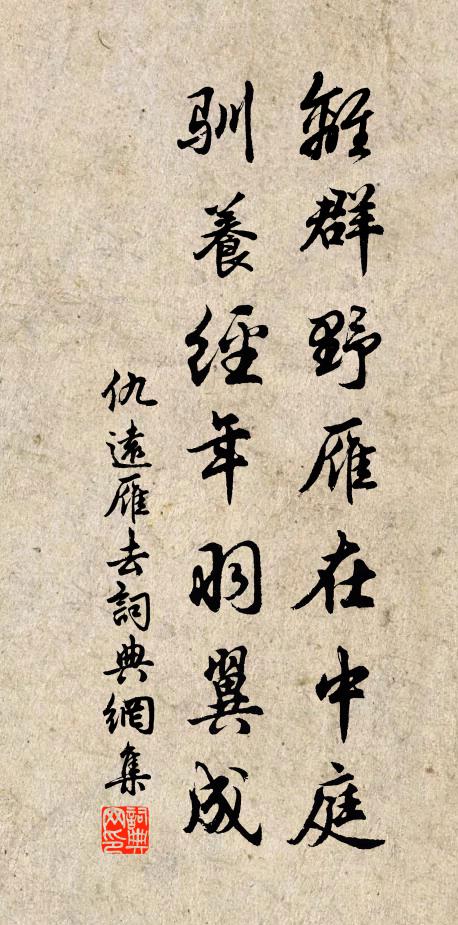 離群野雁在中庭
馴養經年羽翼成
仇遠雁去詞典網集
詞典网印